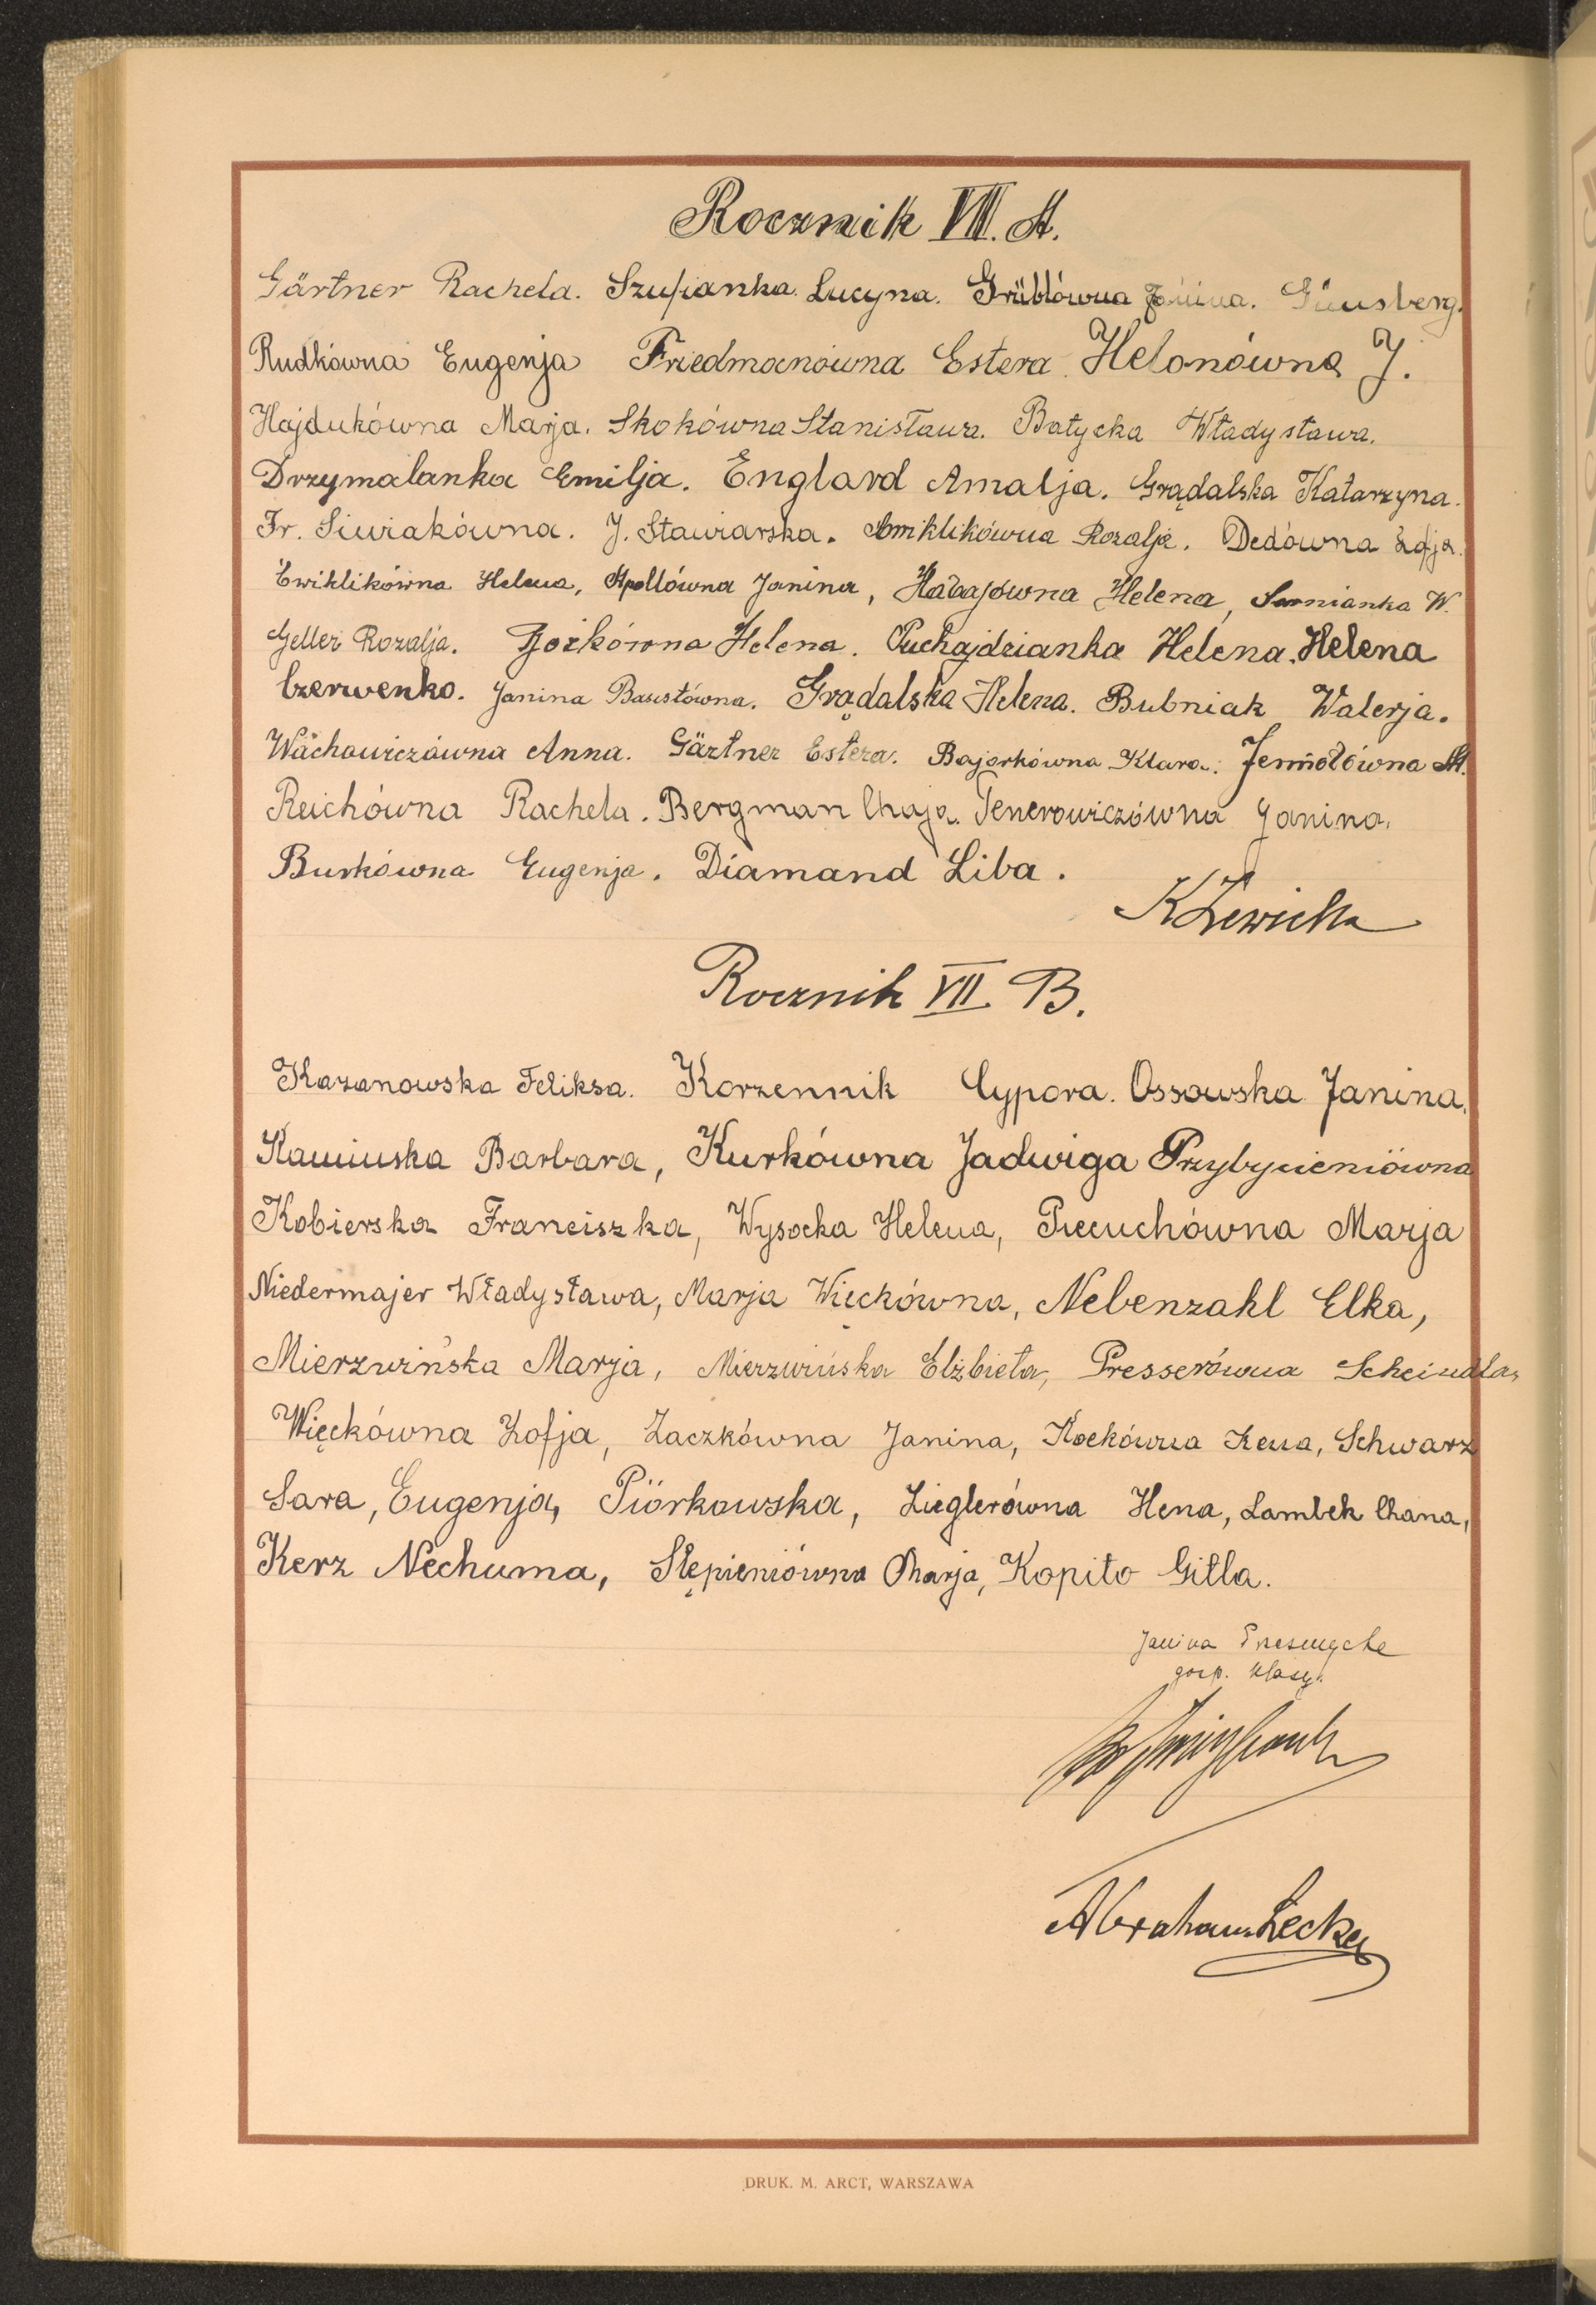 Rocznik VII. A.
Gärtner Rachela. Szufianka Lucyna. Grüblówna Janina. Günsberg.
Rudkówna Eugenja Friedmanówna Estera. Helonówna J.
Hajdukówna Marja. Skokówna Stanisława. Batycka Władysława.
Drzymalanka Emilja. Englard Amalja. Grądalska Katarzyna.
Fr. Siwiakówna. J. Stawiarska. Ćwiklikówna Rozalja. Dedówna Zofja.
Ćwiklikówna Helena, Apollówna Janina, Hałajówna Helena, Sarnianka W.
Geller Rozalja. Helena. Puchajdzianka Helena. Helena
Czerwenko. Janina Grądalska Helena. Bubniak Walerja.
Wachowiczówna Anna. Gärtner Estera. Bajorkówna Klara. Jermołówna M.
Reichówna Rachela. Bergman Chaja. Tenerowiczówna Janina.
Burkówna Eugenja. Diamand Liba.
KLewicka
Rocznik VII. B.
Kazanowska Feliksa. Korzennik Cypora. Ossowska Janina.
Kamińska Barbara, Kurkówna Jadwiga Przybycieniówna
Kobierska Franciszka, Wysocka Helena, Piecuchówna Marja
Niedermajer Władysława, Marja Więckówna, Nebenzahl Elka,
Mierzwińska Marja, Mierzwińska Elżbieta, Presserówna Scheindla,
Więckówna Zofja, Zaczkówna Janina, Kockówna Xena, Schwarz
Sara, Eugenja, Piórkowska, Zieglerówna Hena, Lambek Chana,
Kerz Nechuma, Stępieniówna Marja, Kopito Gitla.
Janina Przesmycka
gosp. klasy.
Abraham Lecker
DRUK. M. ARCT, WARSZAWA